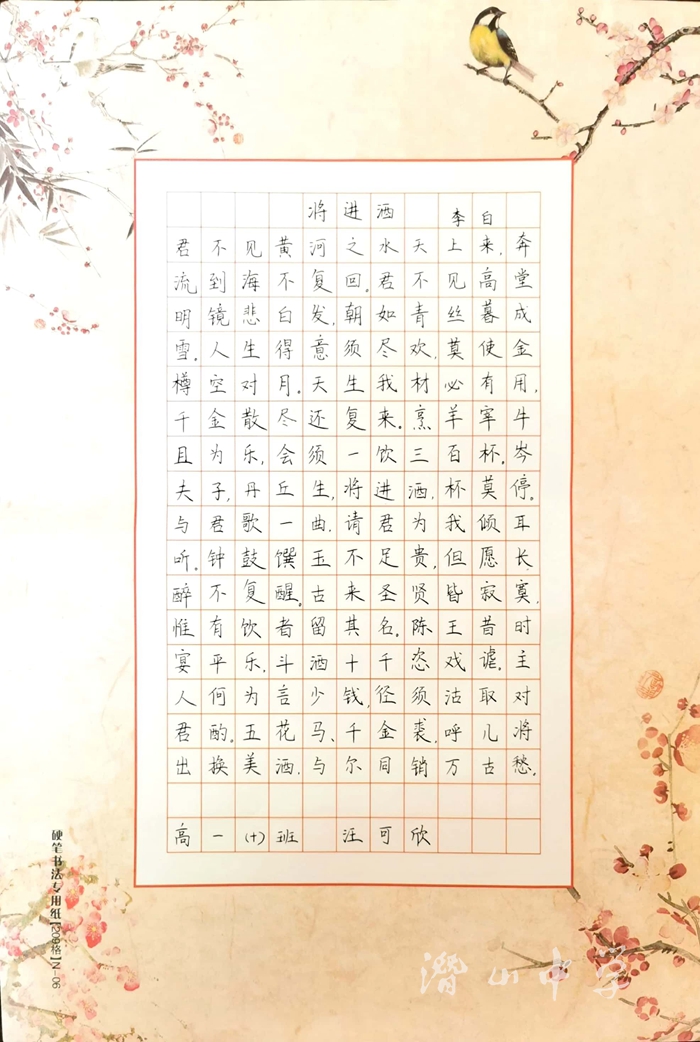 将进酒 李白
君不见黄河之水天上来,奔
流到海不复回。君不见高堂
明镜悲白发,朝如青丝暮成
雪。人生得意须尽欢,莫使金
樽空对月。天生我材必有用,
千金散尽还复来。烹羊宰牛
且为乐,会须一饮三百杯。岑
夫子,丹丘生,将进酒,杯莫停。
与君歌一曲,请君为我倾耳
听。钟鼓馔玉不足贵,但愿长
醉不复醒。古来圣贤皆寂寞,
惟有饮者留其名。陈王昔时
宴平乐,斗酒十千恣戏谑。主
人何为言少钱,径须沽取对
君酌。五花马、千金裘,呼儿将
出换美酒,与尔同销万古愁。
高一(十)班 汪可欣
硬笔书法专用纸【209格】N-06
潜山中学